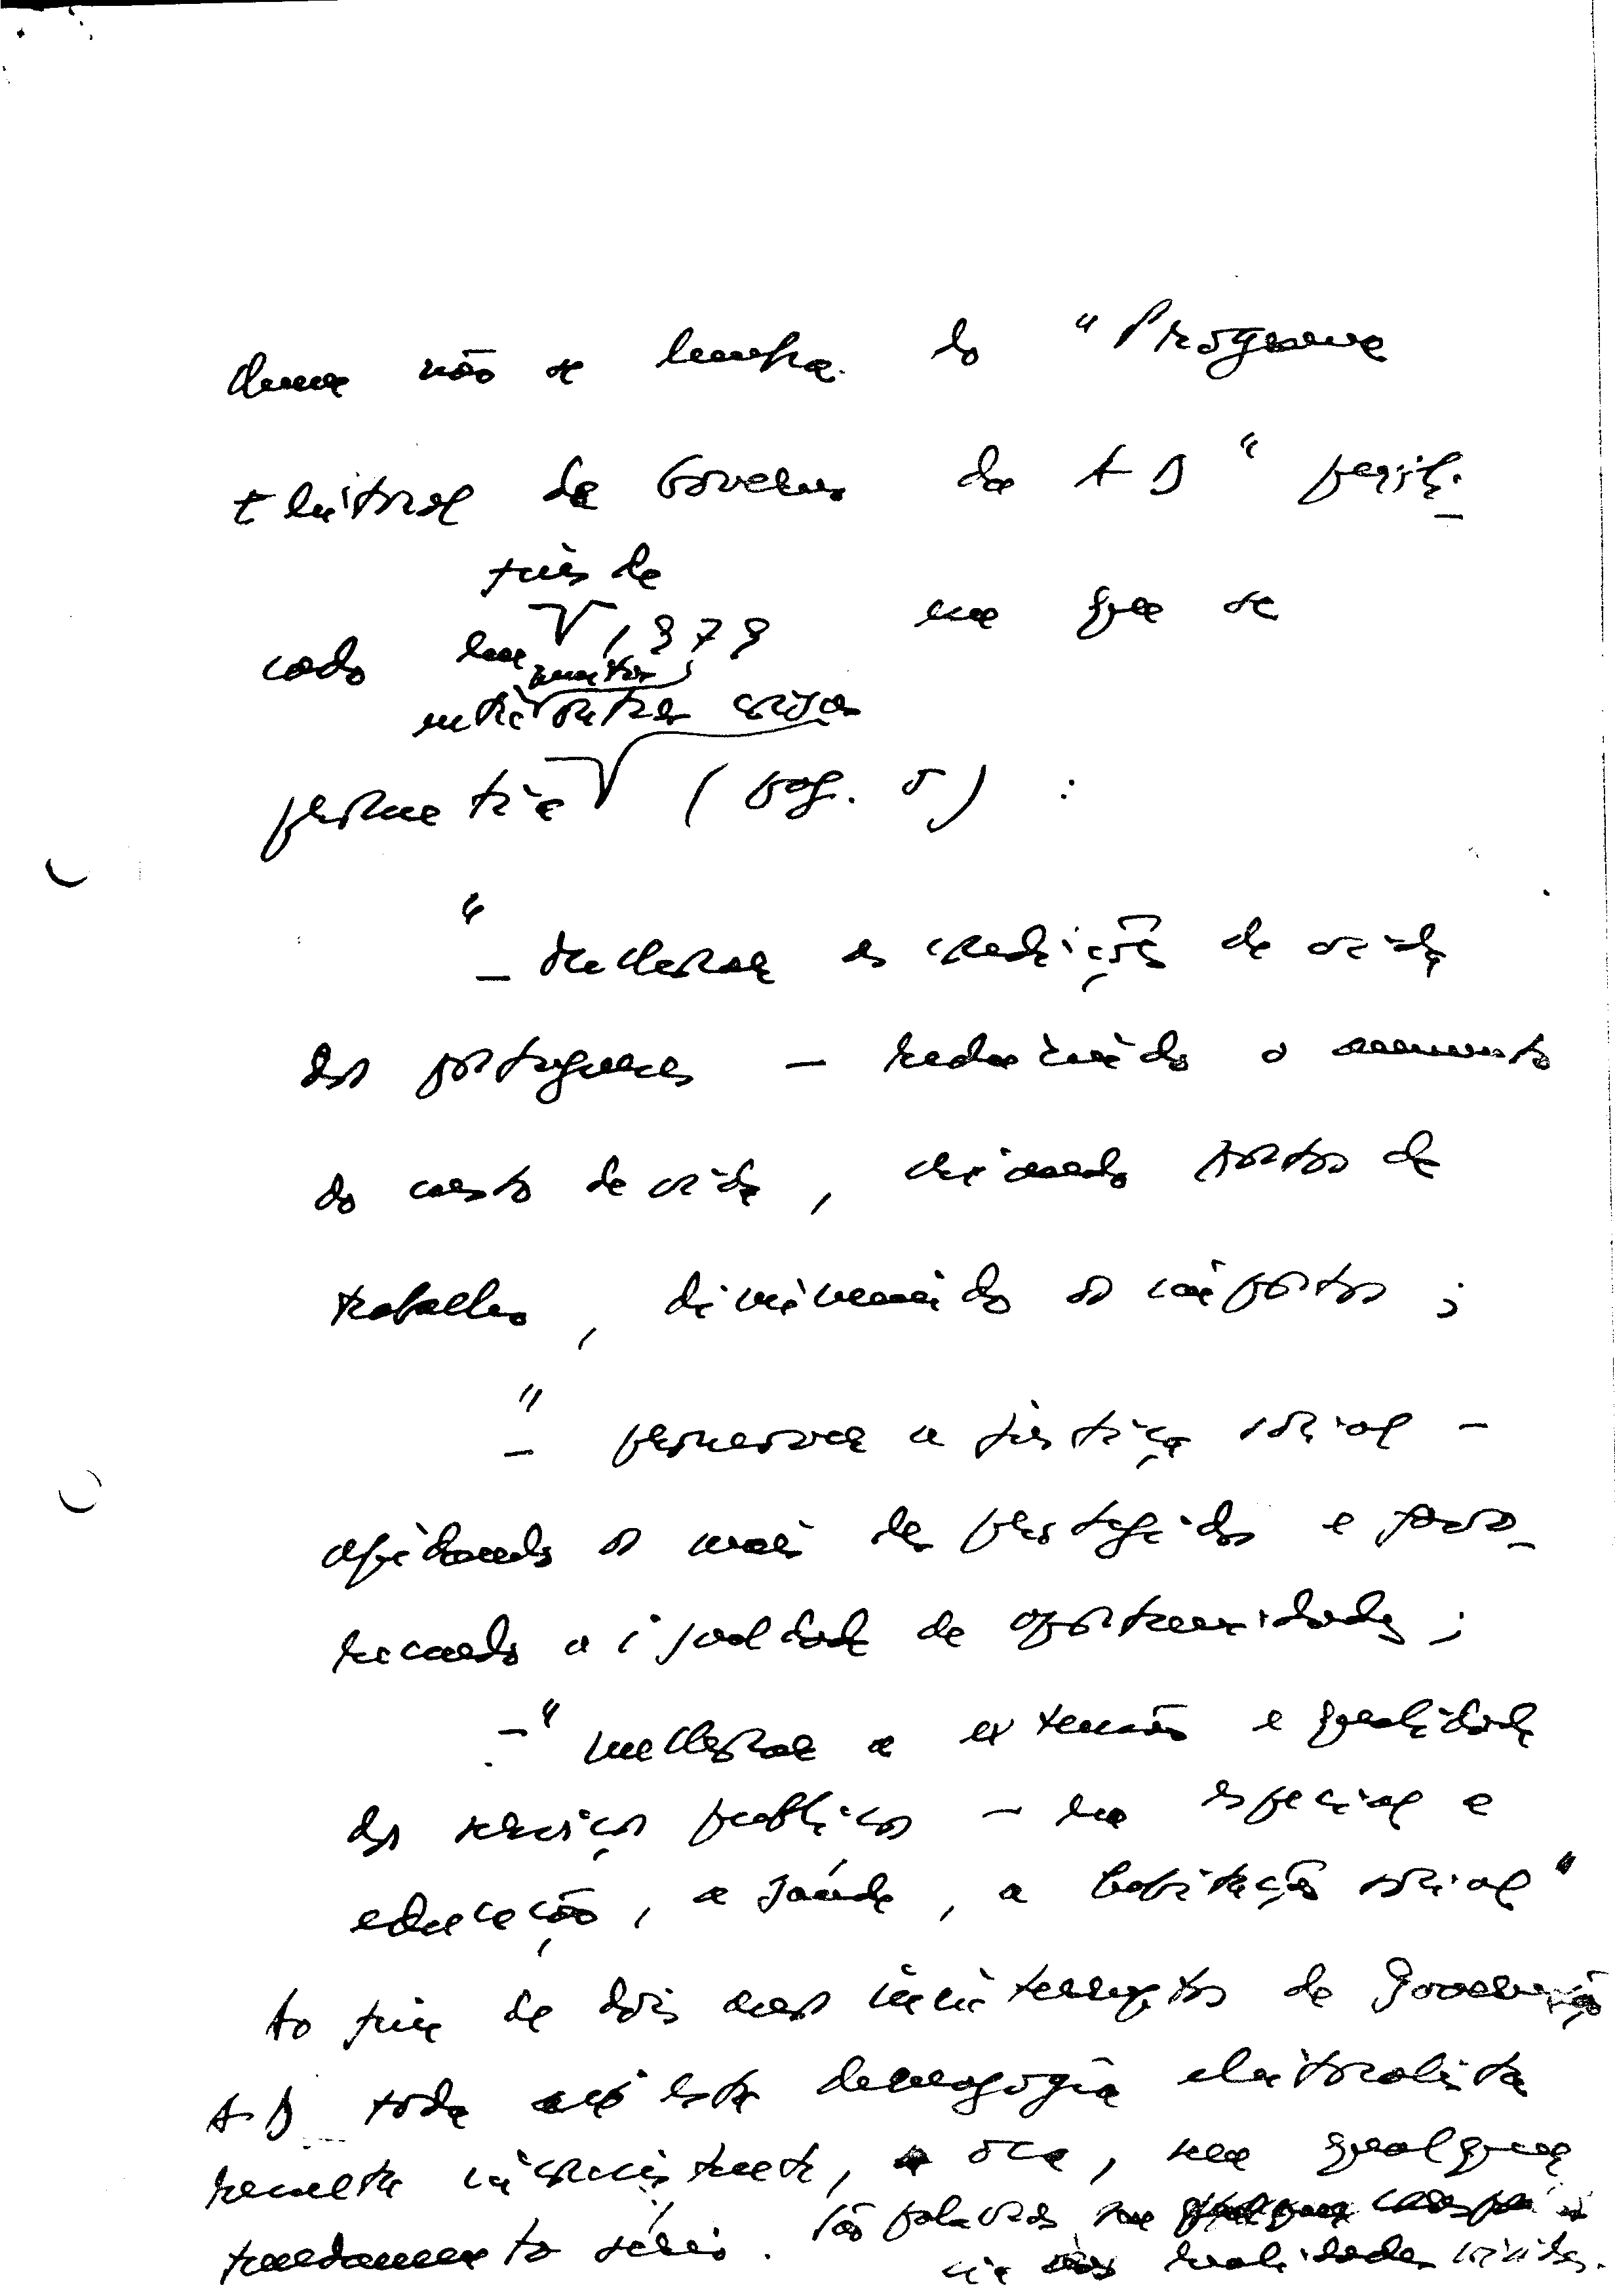 Quem não se lembra do "Programa
Eleitoral de Governo da AD" publi-
cado em 1979 em que se
fins de
prometia (pág. 5) :
entre muitas outras coisas
"- Melhorar as condições de vida
dos portugueses - reduzindo o aumento
do custo de vida, criando postos de
trabalho, diminuindo os impostos ;
"- promover a justiça social -
apoiando os mais desprotegidos e favo-
recendo a igualdade de oportunidades ;
-" melhorar a extensão e qualidade
dos serviços públicos - em especial a
educação, a saúde, a habitação social"
Ao fim de dois anos ininterruptos de governação
AD toda esta demagogia eleitoralista
resulta inconsistente, oca, sem qualquer
fundamento sério. São palavras sem
realidades vividas.